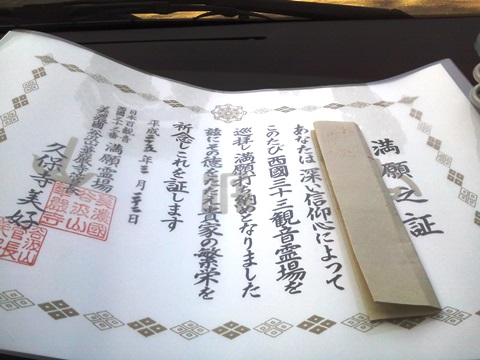 満願之証
あなたは深い信仰心によって
このたび西國三十三観音霊場を
巡拝し満願打ち納めとなりました
茲にその徳をたたえ貴家の繁栄を
祈念しこれを証します
平成二十五年三月二十三日
日本百観音
西國三十三番
満願霊場
美濃國谷汲山華厳寺